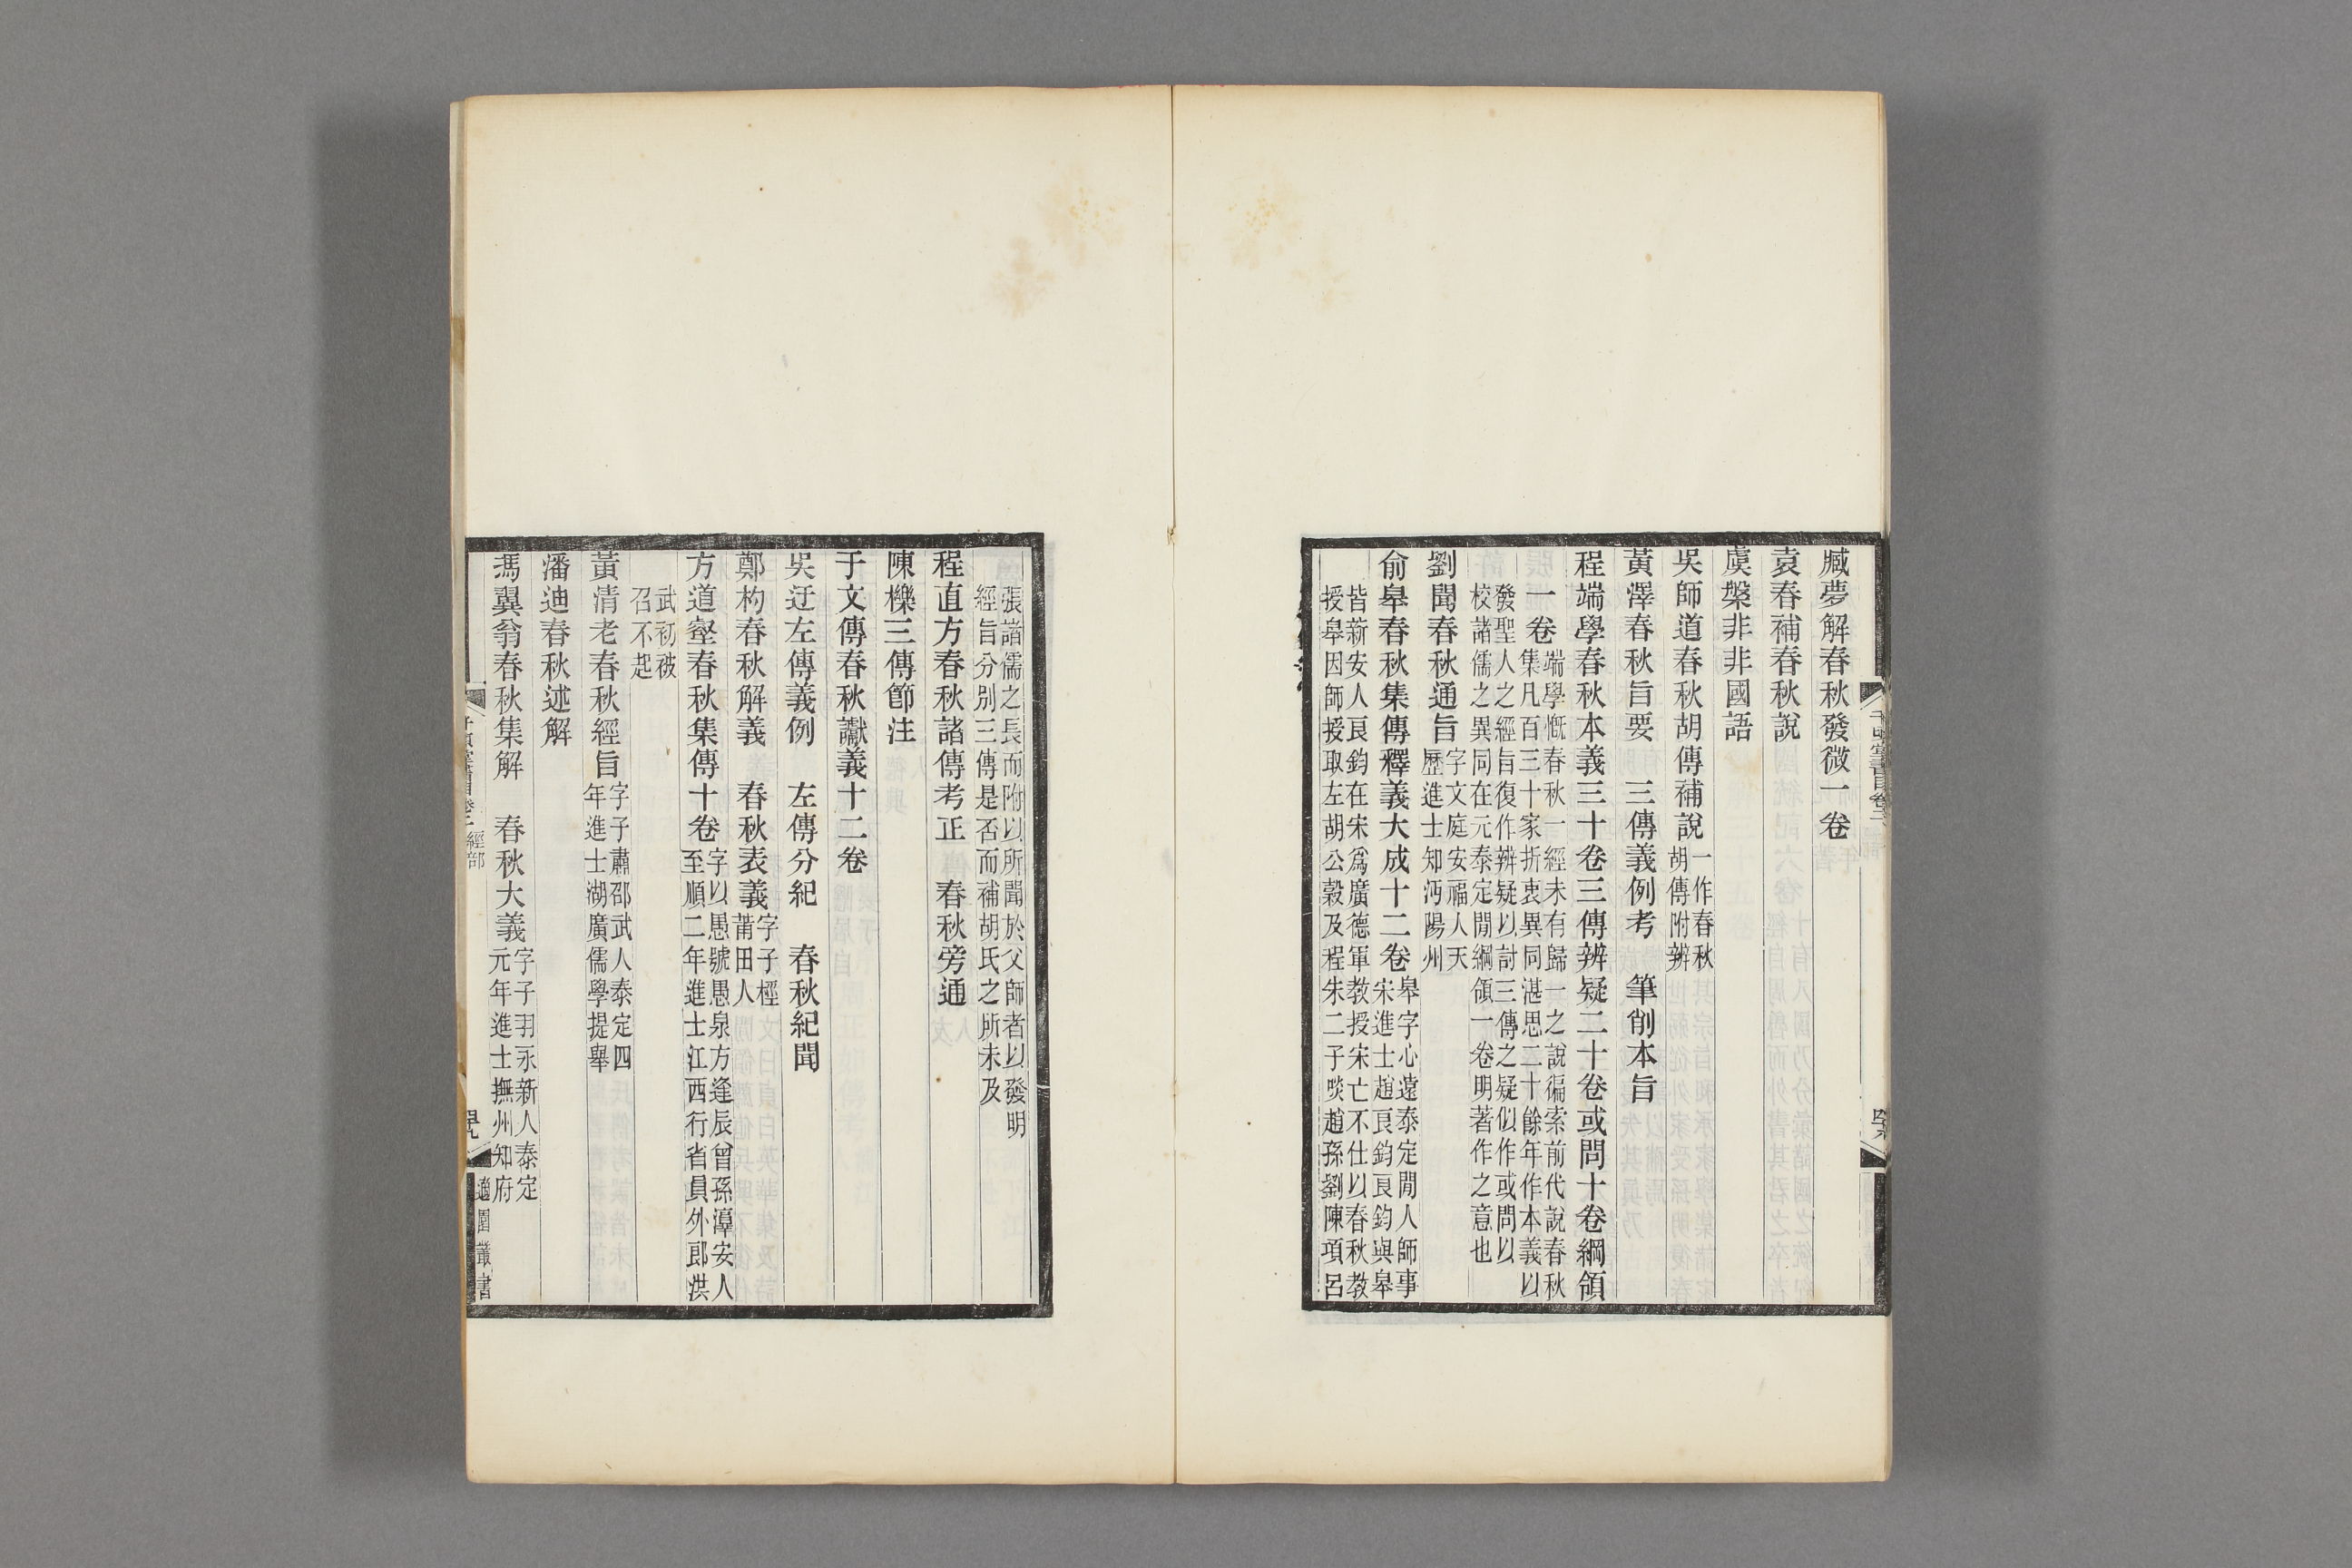 臧夢解春秋發微一卷
袁春補春秋說
虞槃非非國語
吳師道春秋胡傳補說一作春秋
胡傳附辨
黃澤春秋旨要　三傳義例考　筆削本旨
程端學春秋本義三十卷三傳辨疑二十卷或問十卷綱領
一卷端學慨春秋一經未有歸一之說徧索前代說春秋
集凡百三十家折衷異同湛思二十餘年作本義以
發聖人之經旨復作辨疑以討三傳之疑似作或問以
校諸儒之異同在元泰定閒綱領一卷明著作之意也
劉聞春秋通旨字文庭安福人天
歷進士知沔陽州
俞皋春秋集傳釋義大成十二卷皋字心遠泰定閒人師事
宋進士趙良鈞良鈞與皋
皆新安人良鈞在宋爲廣德軍教授宋亡不仕以春秋教
授皋因師授取左胡公穀及程朱二子啖趙孫劉陳項呂
張諸儒之長而附以所聞於父師者以發明
經旨分別三傳是否而補胡氏之所未及
程直方春秋諸傳考正　春秋旁通
陳櫟三傳節注
于文傳春秋讞義十二卷
吳迂左傳義例　左傳分紀　春秋紀聞
鄭杓春秋解義　春秋表義字子桱
莆田人
方道壑春秋集傳十卷字以愚號愚泉方逢辰曾孫淳安人
至順二年進士江西行省員外郎洪
武初被
召不起
黃清老春秋經旨字子肅邵武人泰定四
年進士湖廣儒學提舉
潘迪春秋述解
馮翼翁春秋集解　春秋大義字子羽永新人泰定
元年進士撫州知府
經部
適園叢書